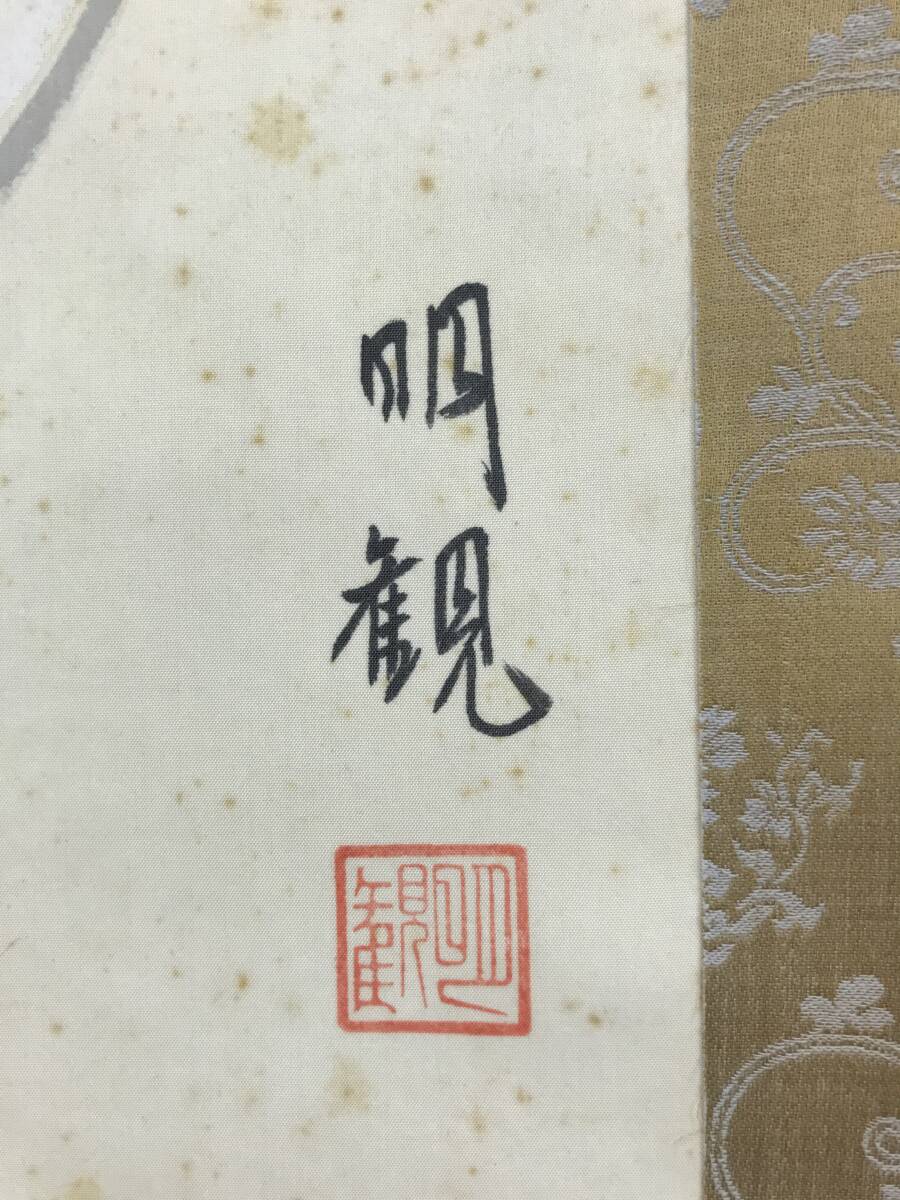 明観
明観